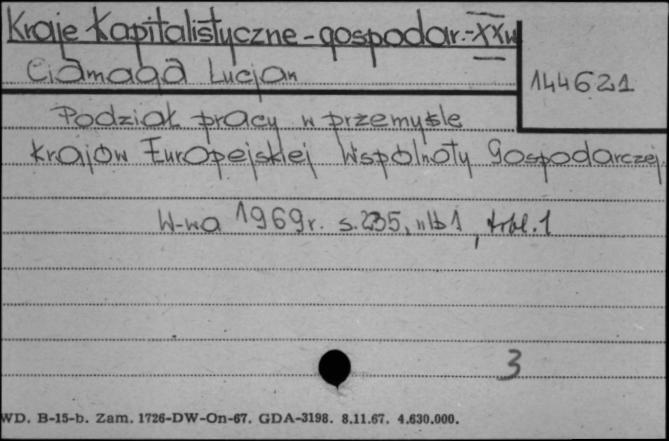 Kraje kapitalistyczne - gospodar. - XXw
Ciamaga Lucjan
144621
Podział pracy w przemyśle
krajów Europejskiej Wspólnoty Gospodarczej
W-wa 1969r. s. 235, nlb 1, tabl. 1
3
WD. B-15-b. Zam. 1726-DW-On-67. GDA-3198. 8.11.67. 4.630.000.